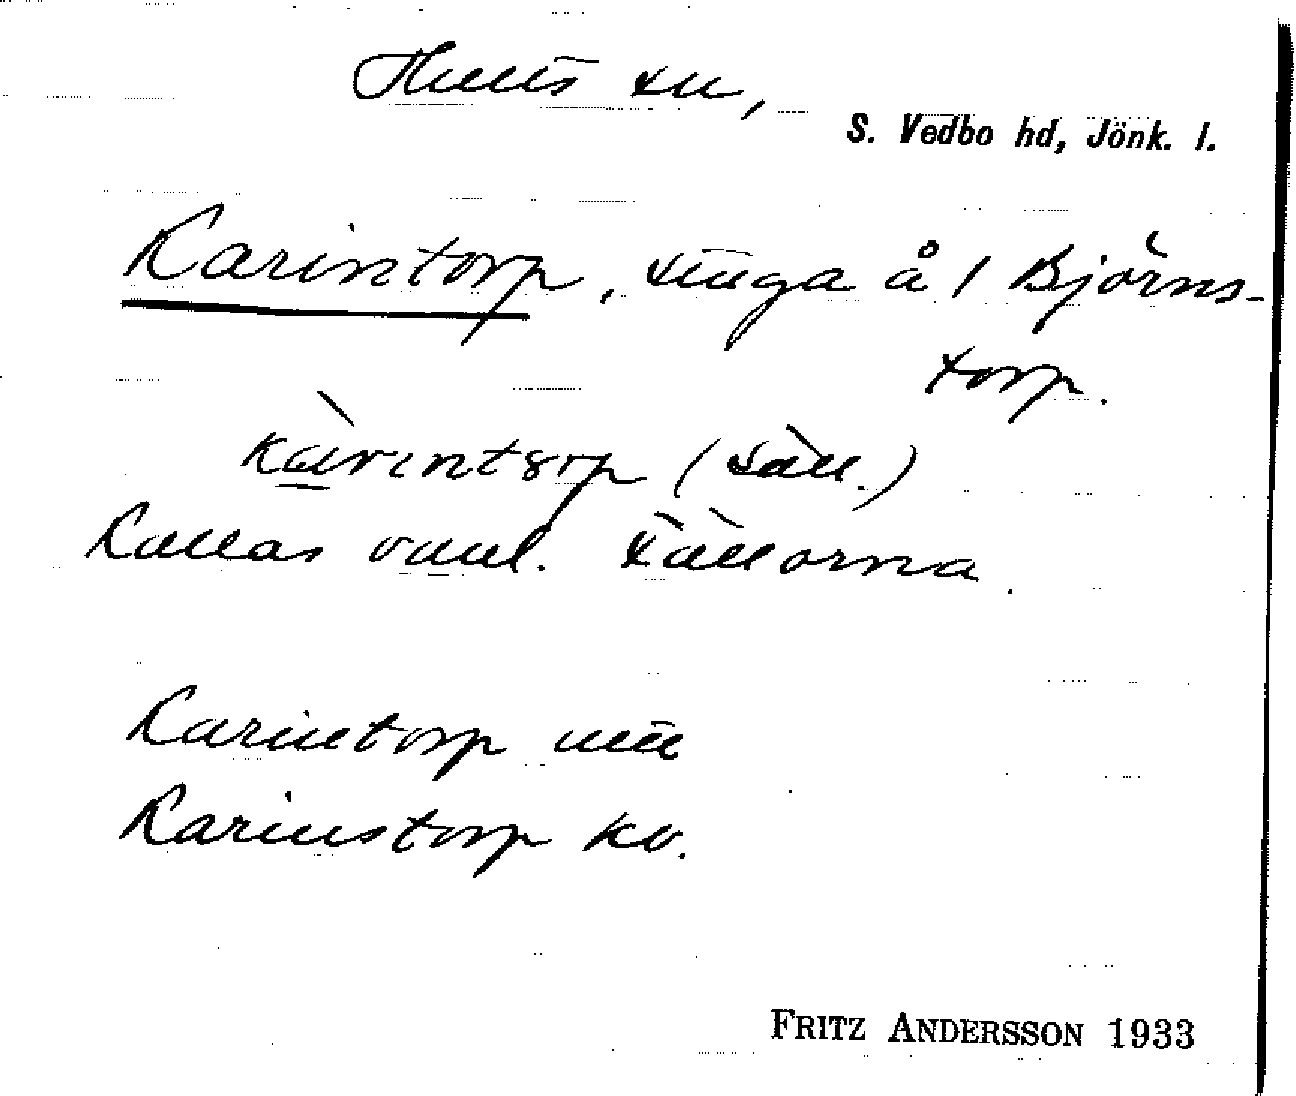 Hults sn,
S. Vedbo hd, Jönk. l.
Karintorp, stuga å 1 Björns-
torp.
kàrintorp (säll.)
Kallas vanl. Tällorna.
Karintorp
Karinstorp kv.
FRITZ ANDERSSON 1933